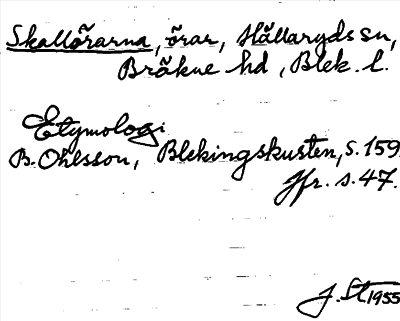 Skallörarna, örar, Hällaryds sn,
Bräkne hd, Blek. l.
Etymologi
B. Ohlsson, Blekingskusten, s. 159
Jfr. s. 47.
J. St 1955